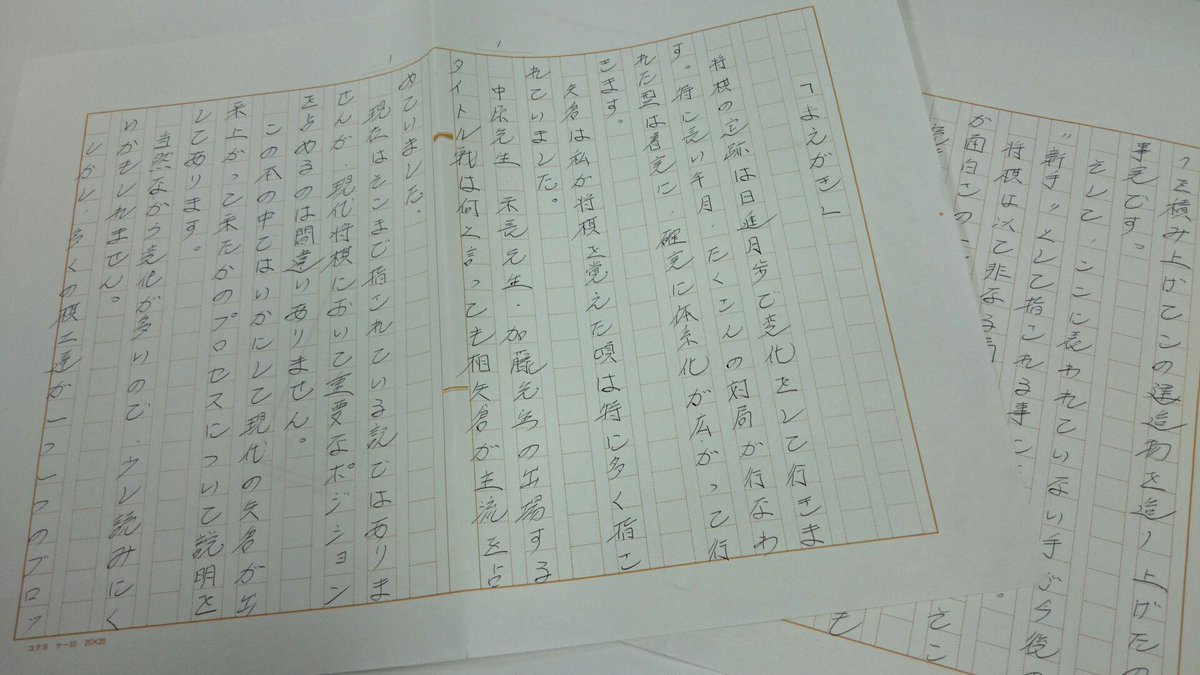 「まえがき」
将棋の定跡は日進月歩で変化をして行きま
す。特に長い年月、たくさんの対局が行なわ
れた型は着実に、確実に体系化が広がって行
きます。
矢倉は私が将棋を覚えた頃は特に多く指さ
れていました。
中原先生・米長先生・加藤先生の出場する
タイトル戦は何と言っても相矢倉が主流を占
めていました。
現在はそこまで指されている訳ではありま
せんが、現代将棋において重要なポジション
を占めるのは間違いありません。
この本の中ではいかにして現代の矢倉が出
来上がって来たかのプロセスについて説明を
してあります。
当然ながら変化が多いので、少し読みにく
いかもしれません。
しかし、多くの棋士達が一つ一つのブロッ
コクヨ ケー10 20×20
クを積み上げてこの建造物を造り上げたの
事実です。
そして、ここに表われていない手が今後の
"新手"として指される事
将棋は以て非なる局
が面白さの
さこ
も